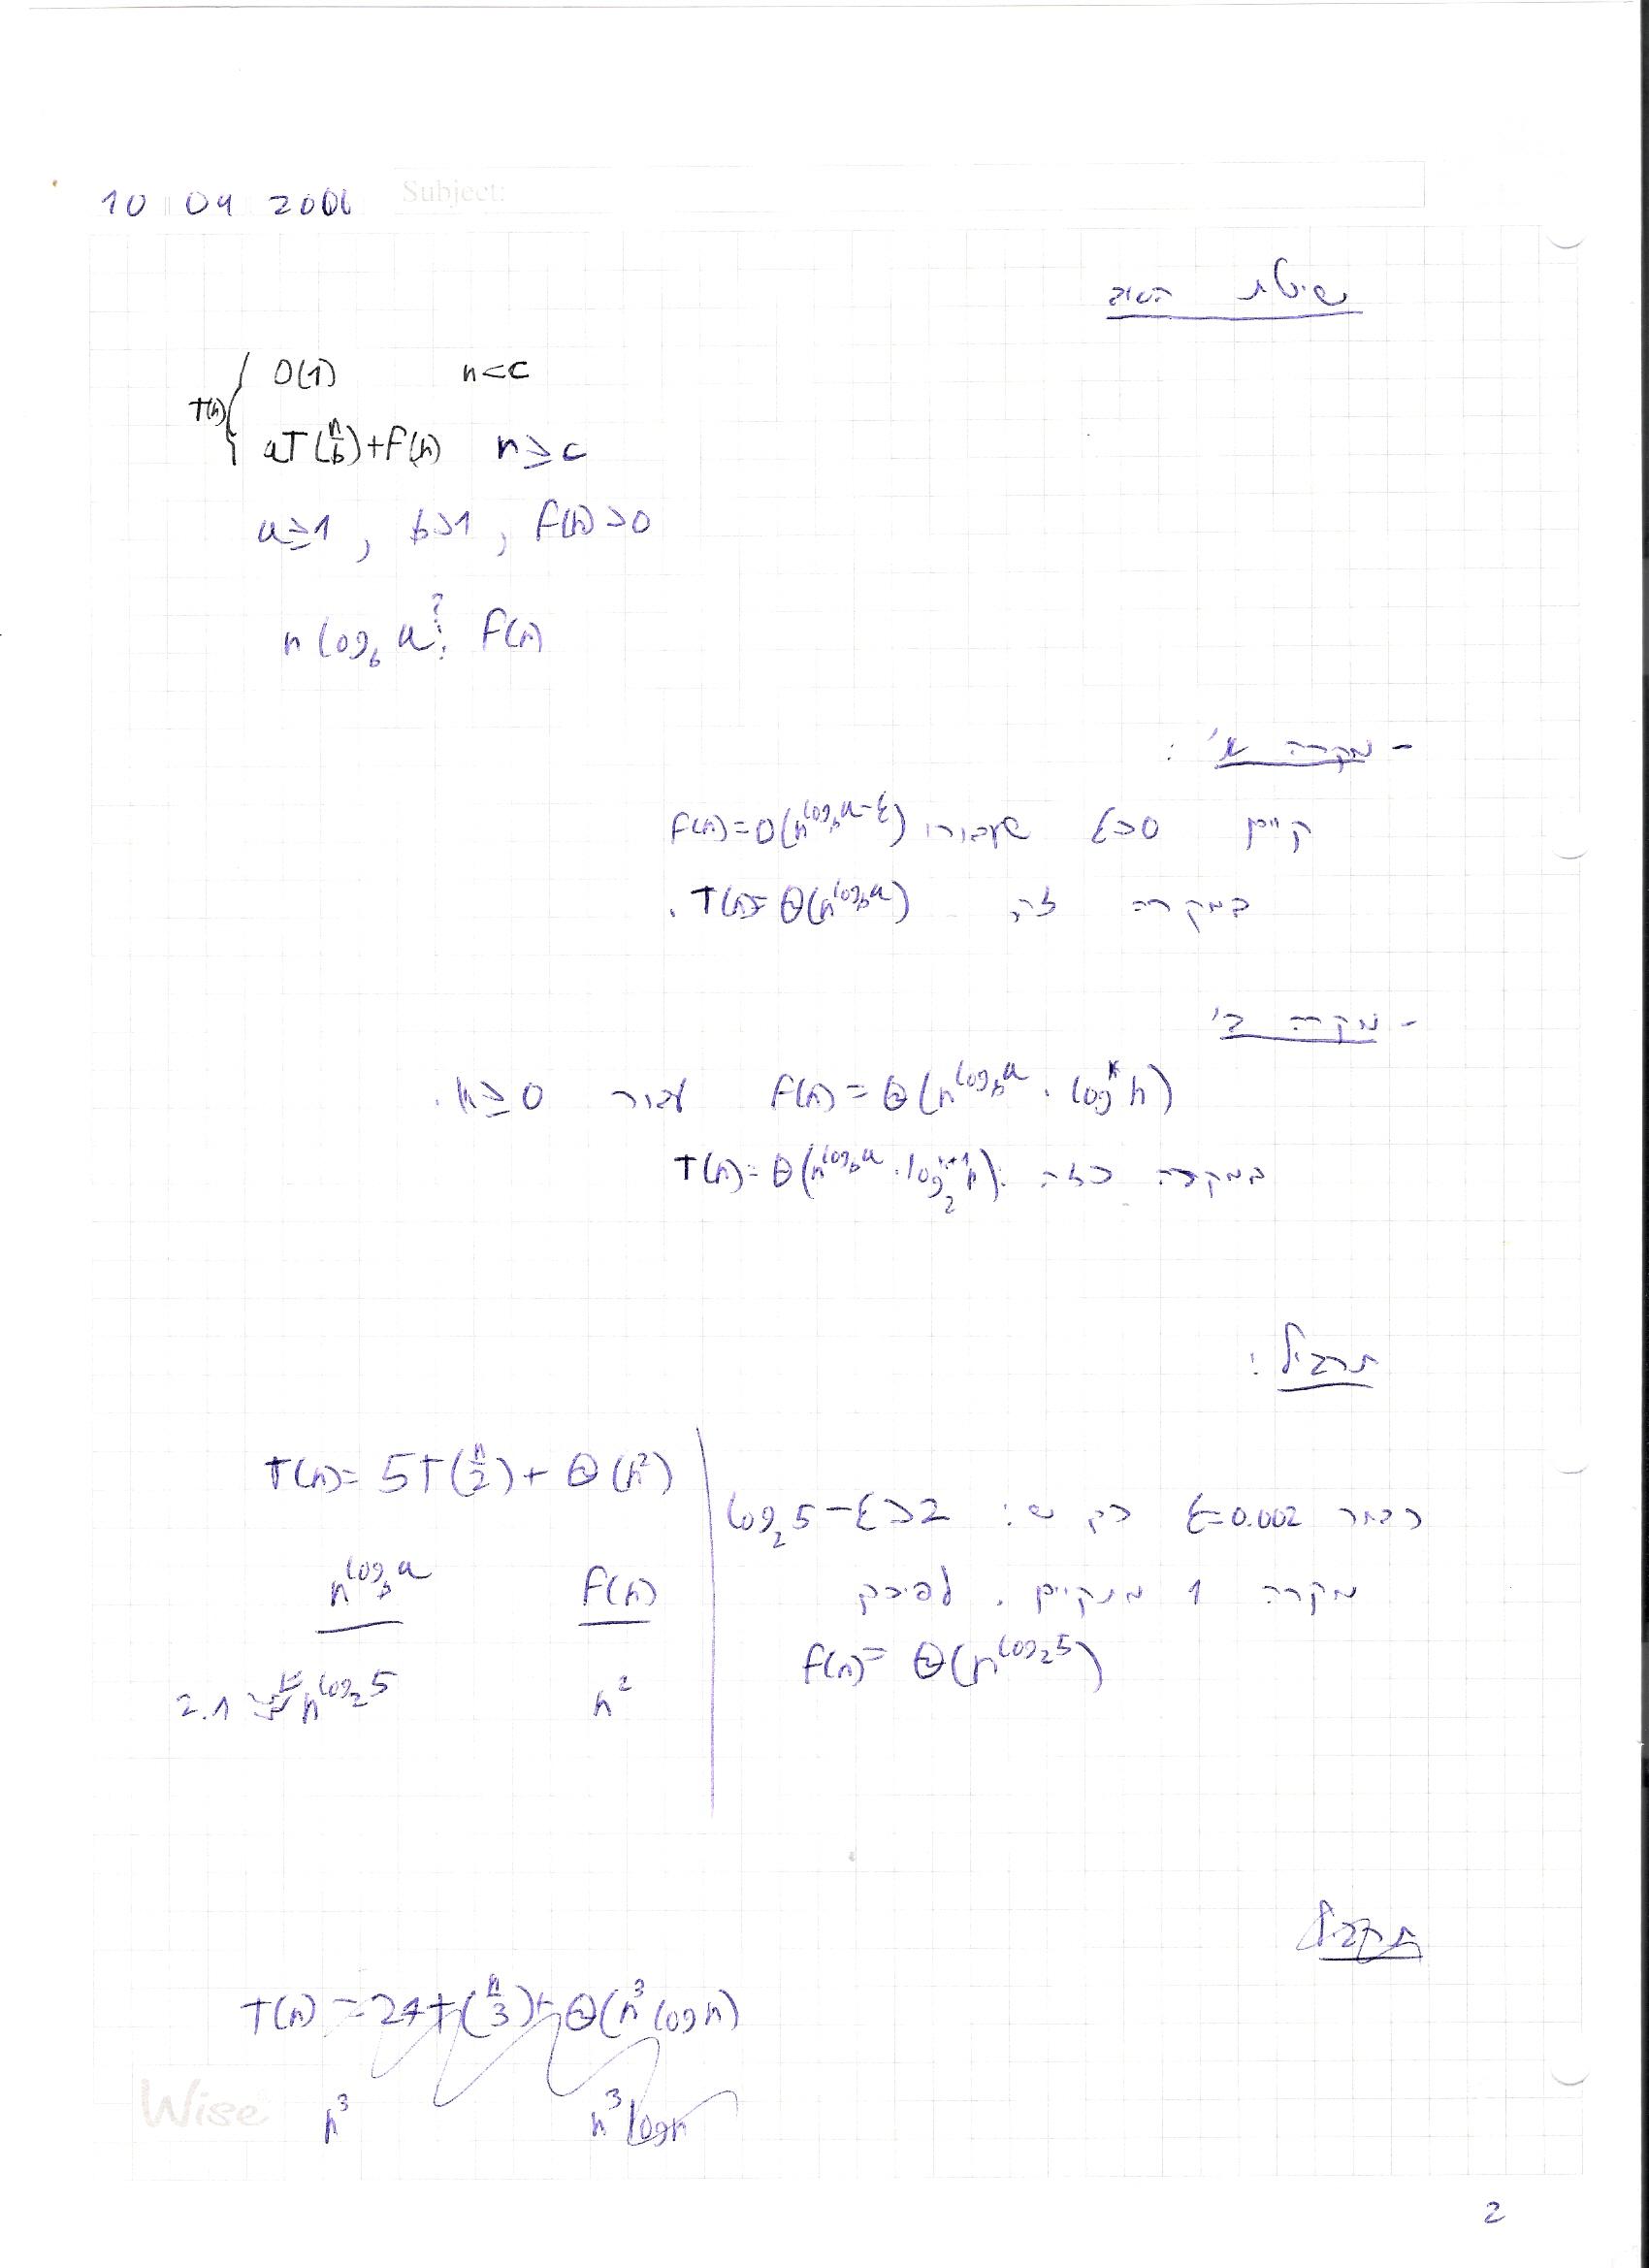 10 04 2006 Subject:
שיטת האב
T(n) { O(1) n<c
aT(n/b)+f(n) n≥c
a≥1, b>1, f(n)>0
n log_b a ? f(n)
- מקרה א':
קיים ε>0 שעבורו f(n)=O(n^{log_b a-ε})
במקרה זה, T(n)=Θ(n^{log_b a}).
- מקרה ב'
f(n)=Θ(n^{log_b a}·log^k n) עבור k≥0.
במקרה כזה: T(n)=Θ(n^{log_b a}·log_2^{k+1} n)
תרגיל:
T(n)=5T(n/2)+Θ(n²)
n^{log_b a} f(n)
n^{log_2 5} n²
נבחר ε=0.002 כך ש: log_2 5-ε>2
מקרה 1 מתקיים. לפיכך
f(n)=Θ(n^{log_2 5})
תרגיל
T(n)=27T(n/3)+Θ(n³ log n)
n³ n³ log n
Wise
2